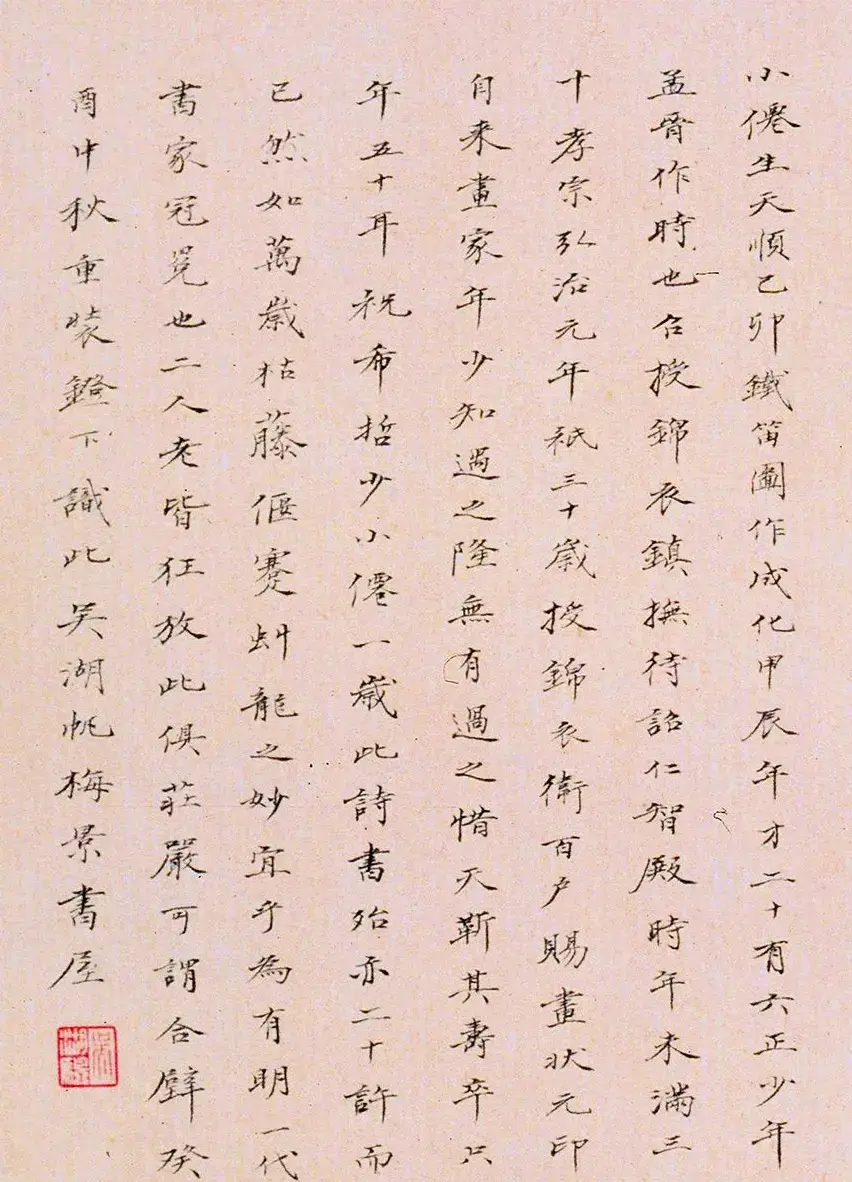 小僊生天順己卯鐵笛圖作成化甲辰年才二十有六正少年
孟晉作時也召授錦衣鎮撫待詔仁智殿時年未滿三
十孝宗弘治元年祇三十歲授錦衣衛百戶賜畫狀元印
自来畫家年少知遇之隆無有過之惜天靳其壽卒只
年五十耳祝希哲少小僊一歲此詩書殆亦二十許而
已然如萬歲枯藤偃蹇虯龍之妙宜乎為有明一代
書家冠冕也二人老皆狂放此俱莊嚴可謂合璧癸
酉中秋重裝鐙下識此吳湖帆梅景書屋